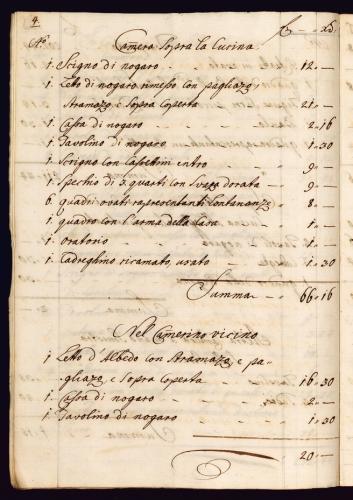 4.
N.º Camera Sopra la Cucina
1. Scrigno di nogaro 12 „ —
1. Leto di nogaro rimesso con pagliazo,
Stramazo, e Sopra Coperta 21 „ —
1. Cassa di nogaro 2 „ 16
1. Tavolino di nogaro 1 „ 30
1. Scrigno con Cassettini entro 9 „ —
1. Spechio di 3. quarti con Svaza dorata 9 „ —
6. quadri ovati rapresentanti Lontananze 8 „ —
1. quadro con l'arma della Casa 1 „ —
1. oratorio 1 „ —
1. Cadreghino ricamato, usato 1 „ 30
Summa 66 „ 16
Nel Camerino vicino
1. Letto d'Albedo con Stramazo, e pa-
gliazo, e Sopra Coperta 16 „ 30
1. Cassa di nogaro 2 „ —
1. Tavolino di nogaro 1 „ 30
20 „ —